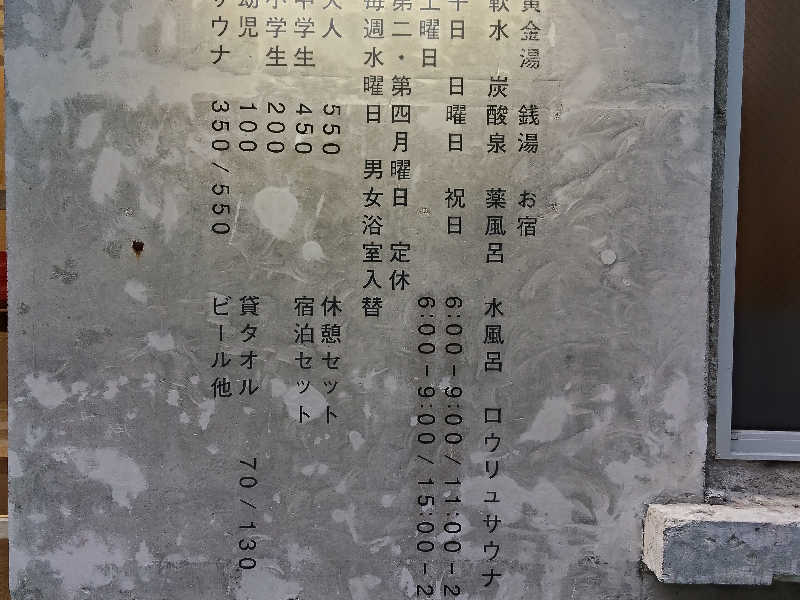 黄金湯 銭湯 お宿
軟水 炭酸泉 薬風呂 水風呂 ロウリュサウナ
平日 日曜日 祝日 6:00-9:00/11:00-2
土曜日 6:00-9:00/15:00-2
第二・第四月曜日 定休
毎週水曜日 男女浴室入替
大人 550 休憩セット
中学生 450 宿泊セット
小学生 200
幼児 100 貸タオル 70/130
サウナ 350/550 ビール他